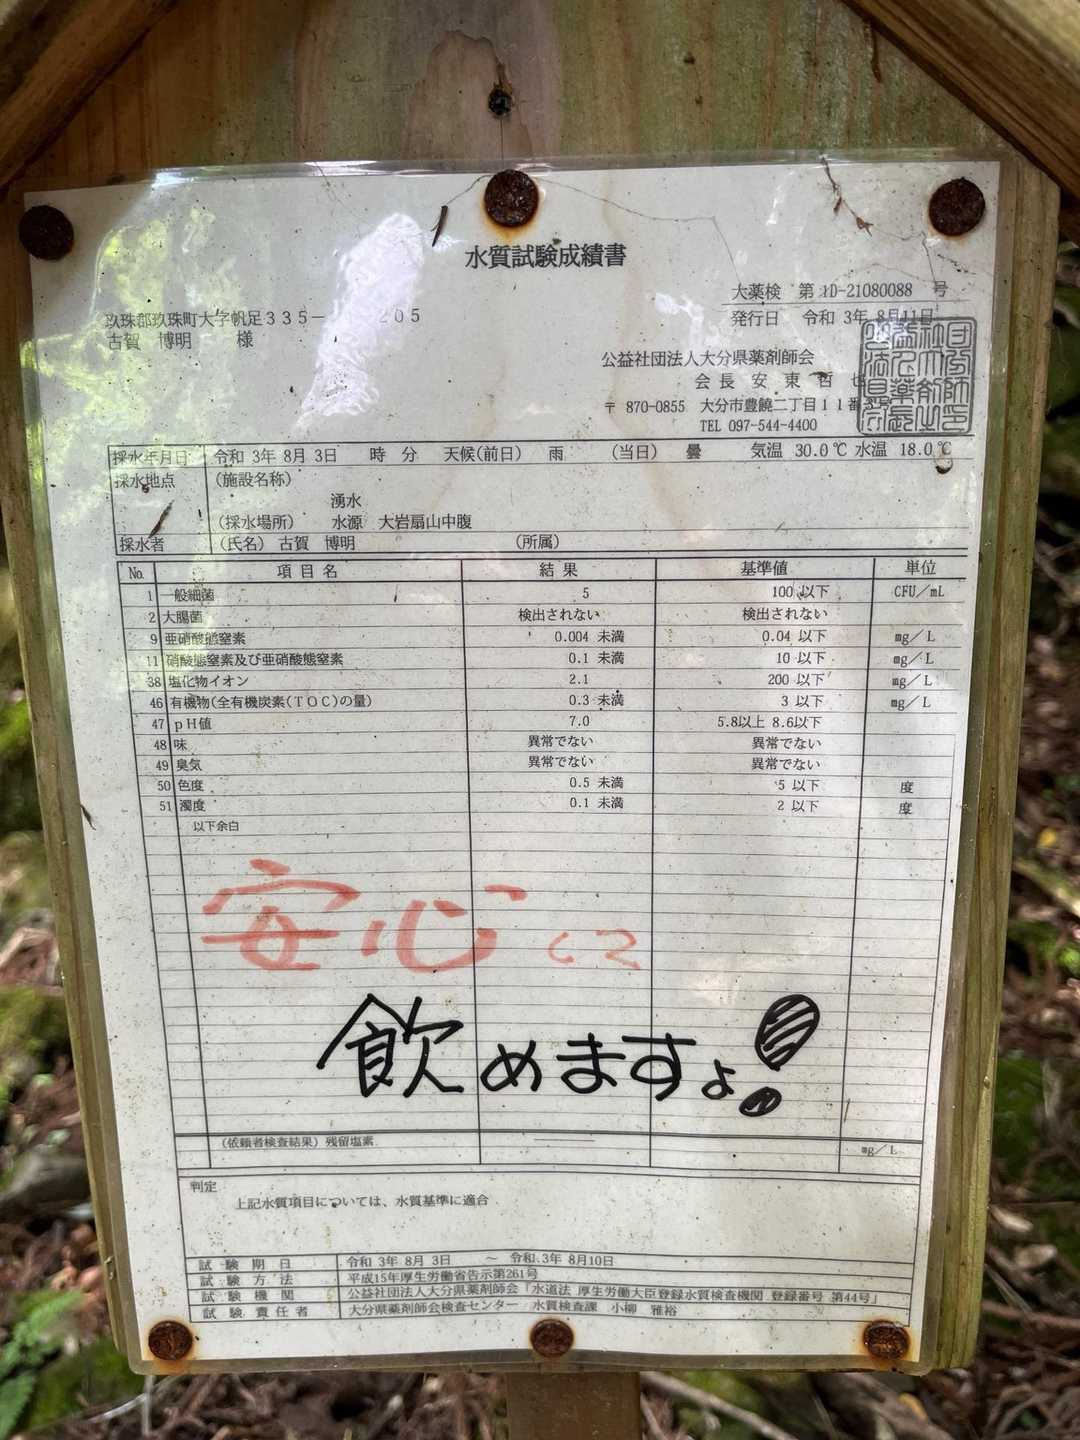 水質試験成績書
大薬検 第 1D-21080088 号
発行日 令和 3年 8月11日
玖珠郡玖珠町大字帆足335- 205
古賀 博明 様
公益社団法人大分県薬剤師会
会長 安東哲也
〒 870-0855 大分市豊饒二丁目11番
TEL 097-544-4400
採水年月日 令和 3年 8月 3日 時 分 天候(前日) 雨 (当日) 曇 気温 30.0℃ 水温 18.0℃
採水地点 (施設名称)
湧水
(採水場所) 水源 大岩扇山中腹
採水者 (氏名) 古賀 博明 (所属)
No. 項目名 結果 基準値 単位
1 一般細菌 5 100 以下 CFU/mL
2 大腸菌 検出されない 検出されない
9 亜硝酸態窒素 0.004 未満 0.04 以下 mg/L
11 硝酸態窒素及び亜硝酸態窒素 0.1 未満 10 以下 mg/L
38 塩化物イオン 2.1 200 以下 mg/L
46 有機物(全有機炭素(TOC)の量) 0.3 未満 3 以下 mg/L
47 pH値 7.0 5.8以上 8.6以下
48 味 異常でない 異常でない
49 臭気 異常でない 異常でない
50 色度 0.5 未満 5 以下 度
51 濁度 0.1 未満 2 以下 度
以下余白
安心して
飲めますよ!
(依頼者検査結果) 残留塩素 ―――― mg/L
判定
上記水質項目については、水質基準に適合
試験期日 令和 3年 8月 3日 ～ 令和 3年 8月10日
試験方法 平成15年厚生労働省告示第261号
試験機関 公益社団法人大分県薬剤師会「水道法 厚生労働大臣登録水質検査機関 登録番号 第44号」
試験責任者 大分県薬剤師会検査センター 水質検査課 小柳 雅裕